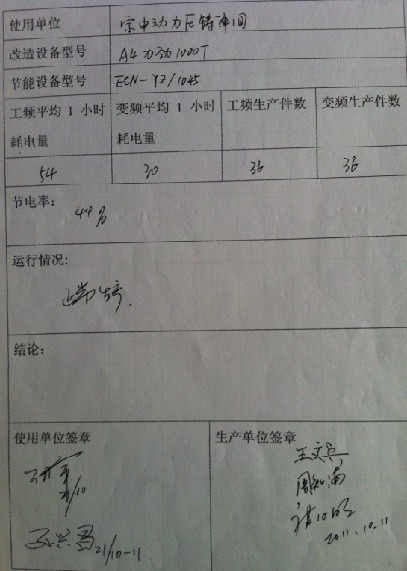 使用单位 宗申动力压铸车间
改造设备型号 A4力劲1000T
节能设备型号 ECN-YZ/1045
工频平均1小时 变频平均1小时 工频生产件数 变频生产件数
耗电量 耗电量
54 30 36 36
节电率:
44%
运行情况:
正常
结论:
使用单位签章 生产单位签章
21/10
21/10-11
王文兵
2011.10.11